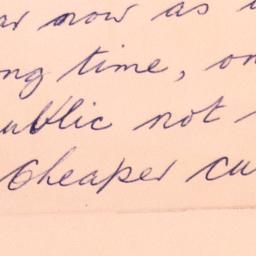 now as
time, on
public not
cheaper cu